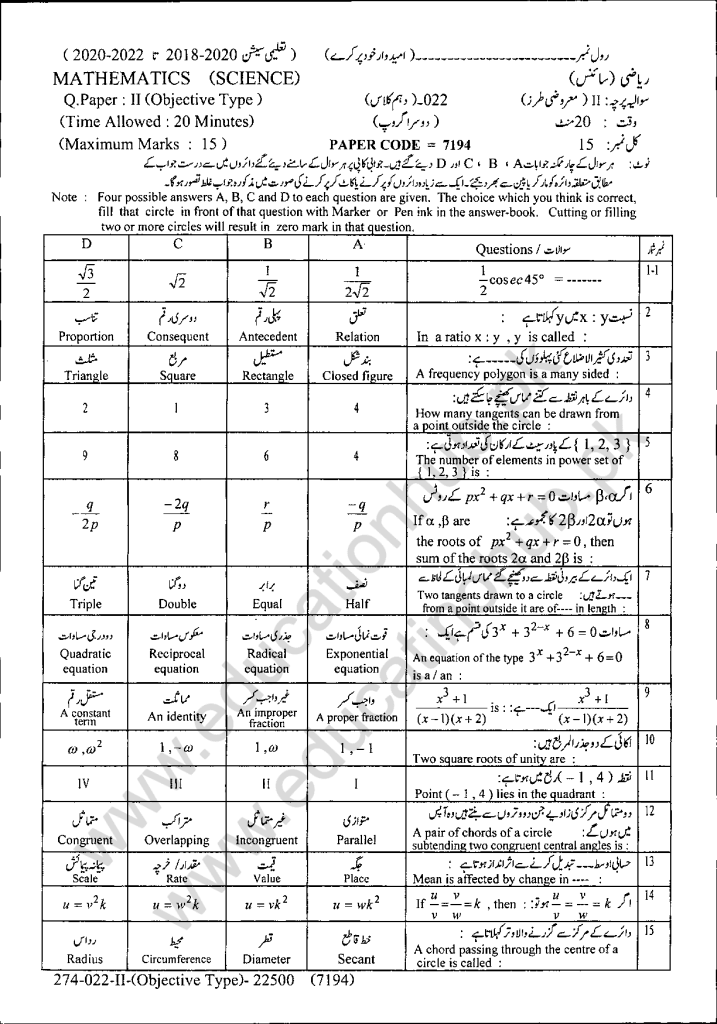 رول نمبر ------------------------ (امیدوار خود پُر کرے) (تعلیمی سیشن 2018-2020 تا 2020-2022)
MATHEMATICS (SCIENCE) ریاضی (سائنس)
Q.Paper : II (Objective Type) 022ـ (دہم کلاس) سوالیہ پرچہ : II (معروضی طرز)
(Time Allowed : 20 Minutes) (دوسرا گروپ) وقت : 20 منٹ
(Maximum Marks : 15) PAPER CODE = 7194 کل نمبر : 15
نوٹ : ہر سوال کے چار ممکنہ جوابات A ، B ، C اور D دیئے گئے ہیں۔ جوابی کاپی پر ہر سوال کے سامنے دیئے گئے دائروں میں سے درست جواب کے
مطابق متعلقہ دائرہ کو مارکر یا پین سے بھر دیجئے۔ ایک سے زیادہ دائروں کو پُر کرنے یا کاٹ کر پُر کرنے کی صورت میں مذکورہ جواب غلط تصور ہوگا۔
Note : Four possible answers A, B, C and D to each question are given. The choice which you think is correct,
fill that circle in front of that question with Marker or Pen ink in the answer-book. Cutting or filling
two or more circles will result in zero mark in that question.
D C B A Questions / سوالات نمبر شمار
√3/2 √2 1/√2 1/2√2 1/2 cosec 45° = ------- 1-1
تناسب دوسری رقم پہلی رقم تعلق نسبت x : y میں y کہلاتا ہے : 2
Proportion Consequent Antecedent Relation In a ratio x : y , y is called :
مثلث مربع مستطیل بند شکل تعددی کثیر الاضلاع کئی پہلوؤں کی ----- ہے: 3
Triangle Square Rectangle Closed figure A frequency polygon is a many sided :
دائرے کے باہر نقطہ سے کتنے مماس کھینچے جا سکتے ہیں: 4
2 1 3 4 How many tangents can be drawn from
a point outside the circle :
{ 1, 2, 3 } کے پاور سیٹ کے ارکان کی تعداد ہوتی ہے: 5
9 8 6 4 The number of elements in power set of
{ 1, 2, 3 } is :
اگر α، β مساوات px² + qx + r = 0 کے روٹس 6
ہوں تو 2α اور 2β کا مجموعہ ہے:
-q/2p -2q/p r/p -q/p If α ,β are
the roots of px² + qx + r = 0 , then
sum of the roots 2α and 2β is :
ایک دائرے کے بیرونی نقطہ سے دو کھینچے گئے مماس لمبائی کے لحاظ سے 7
---- ہوتے ہیں:
تین گنا دو گنا برابر نصف Two tangents drawn to a circle
Triple Double Equal Half from a point outside it are of---- in length :
دو درجی مساوات معکوس مساوات جذری مساوات قوت نمائی مساوات مساوات 3ˣ + 3²⁻ˣ + 6 = 0 کی قسم ہے ایک : 8
Quadratic equation Reciprocal equation Radical equation Exponential equation An equation of the type 3ˣ +3²⁻ˣ + 6=0
is a / an :
مستقل رقم مماثلت غیر واجب کسر واجب کسر 9
A constant term An identity An improper fraction A proper fraction x³ +1/(x−1)(x+2) is : ایک --- ہے: x³ +1/(x−1)(x+2)
اکائی کے دو جذر المربع ہیں: 10
ω , ω² 1 , −ω 1 , ω 1 , −1 Two square roots of unity are :
نقطہ ( − 1 , 4 ) ربع میں ہوتا ہے: 11
IV III II I Point ( − 1 , 4 ) lies in the quadrant :
دو متماثل مرکزی زاویے جن دو وتروں سے بنتے ہیں وہ آپس 12
میں ہوں گے:
متماثل متراکب غیر متماثل متوازی A pair of chords of a circle
Congruent Overlapping Incongruent Parallel subtending two congruent central angles is :
پیمانہ پیمائش مقدار/ خرچہ قیمت جگہ حسابی اوسط --- تبدیل کرنے سے اثر انداز ہوتا ہے: 13
Scale Rate Value Place Mean is affected by change in ---- :
u = v²k u = w²k u = vk² u = wk² If u/v = v/w = k , then : اگر u/v = v/w = k ہو تو: 14
رداس محیط قطر خط قاطع دائرے کے مرکز سے گزرنے والا وتر کہلاتا ہے : 15
Radius Circumference Diameter Secant A chord passing through the centre of a
circle is called :
274-022-II-(Objective Type)- 22500 (7194)
www.educationhub.pk
www.educationhub.pk